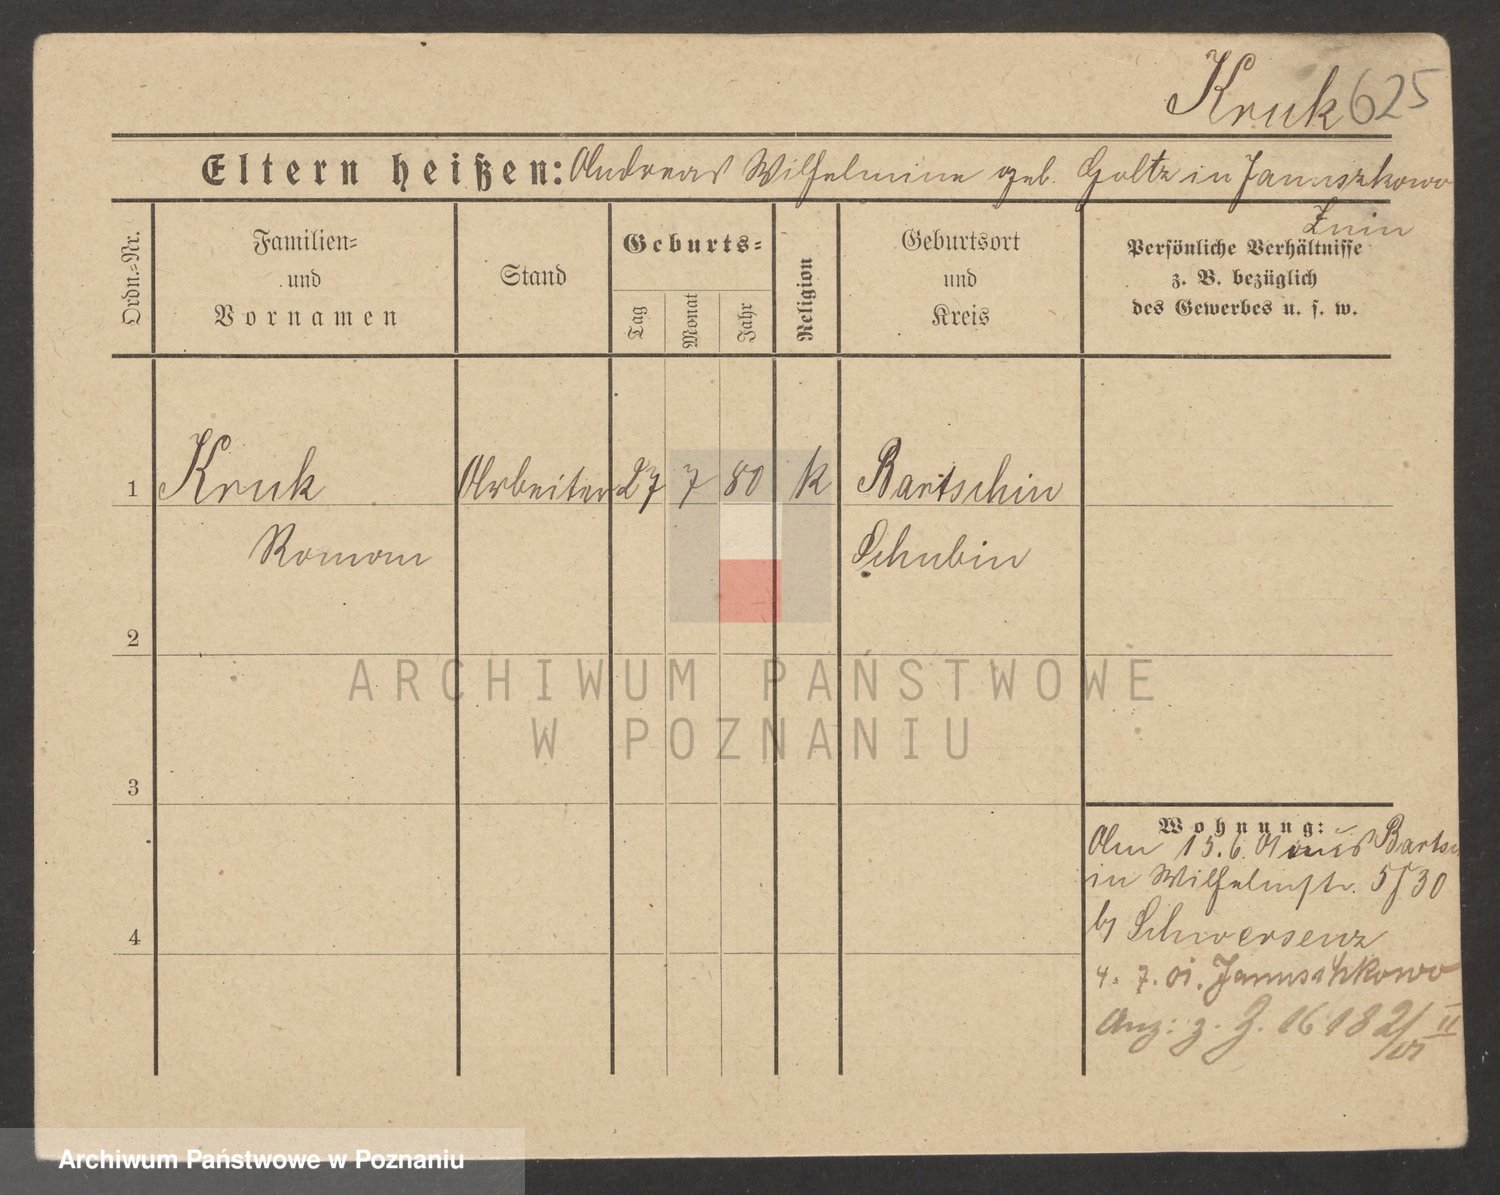 Kruk 625
Eltern heißen: Andreas Wilhelmine geb. Goltz in Januszkowo
Znin
Ordn.-Nr.
Familien-
und
Vornamen
Stand
Geburts-
Tag
Monat
Jahr
Religion
Geburtsort
und
Kreis
Persönliche Verhältnisse
z. B. bezüglich
des Gewerbes u. s. w.
1 Kruk Arbeiter 27 7 80 k Bartschin
Roman Schubin
2
ARCHIWUM PAŃSTWOWE
W POZNANIU
3
Wohnung:
Am 15.6.01 aus Bartsch
in Wilhelmstr. 5/30
by Schwersenz
4. 7. 01. Januschkowo
Anz: z. J. 16182/01 II
4
Archiwum Państwowe w Poznaniu